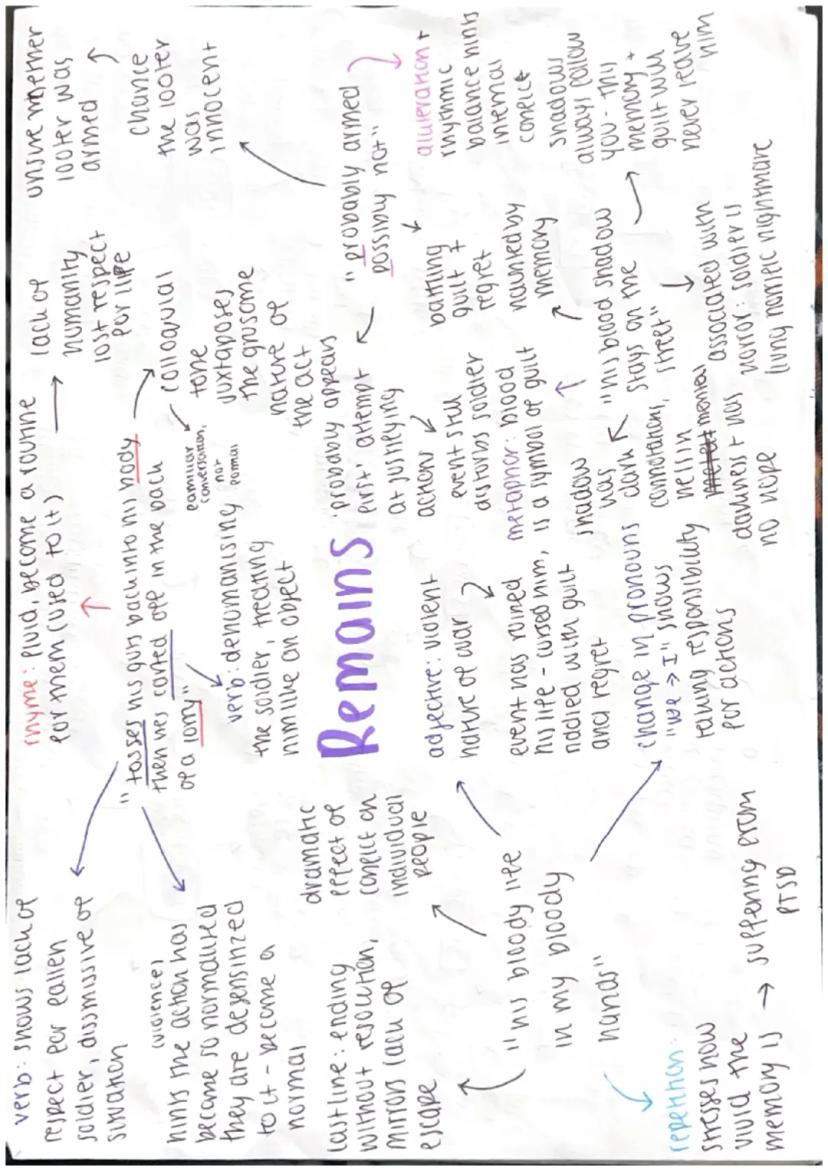 verb: shows lack of
respect for fallen
soldier, dismissive of
situation
(violence)
hints the action has
become so normalised
they are desensitized
to it - become a
normal
rhyme: fluid, become a routine
for them (used to it)
lack of
humanity
lost respect
for life
"tosses his guts back into his body
then hes carted off in the back
of a lorry"
colloquial
tone
juxtaposes
the grusome
nature of
the act
familiar
conversation,
not
formal
verb: dehumanising
the soldier, treating
him like an object
unsure whether
looter was
armed
chance
the looter
was
innocent
Remains
probably appears
first, attempt
at justifying
actions
"probably armed
possibly not"
alliteration +
rhythmic
balance hints
internal
conflict
battling
guilt +
regret
event still
disturbs soldier
haunted by
memory
last line: ending
without resolution,
mirrors lack of
escape
dramatic
effect of
conflict on
individual
people
"his bloody life
in my bloody
hands"
adjective: violent
nature of war
event has ruined
his life - cursed him,
riddled with guilt
and regret
metaphor: blood
is a symbol of guilt
"his blood shadow
stays on the
street"
shadow
has
dark
connotations,
hell in
darkness + has
no hope
associated with
horror: soldier is
living horrific nightmare
shadows
always follow
you - this
memory +
guilt will
never leave
him
change in pronouns
"we → I" shows
taking responsibility
for actions
repetition:
stresses how
vivid the
memory is → suffering from
PTSD